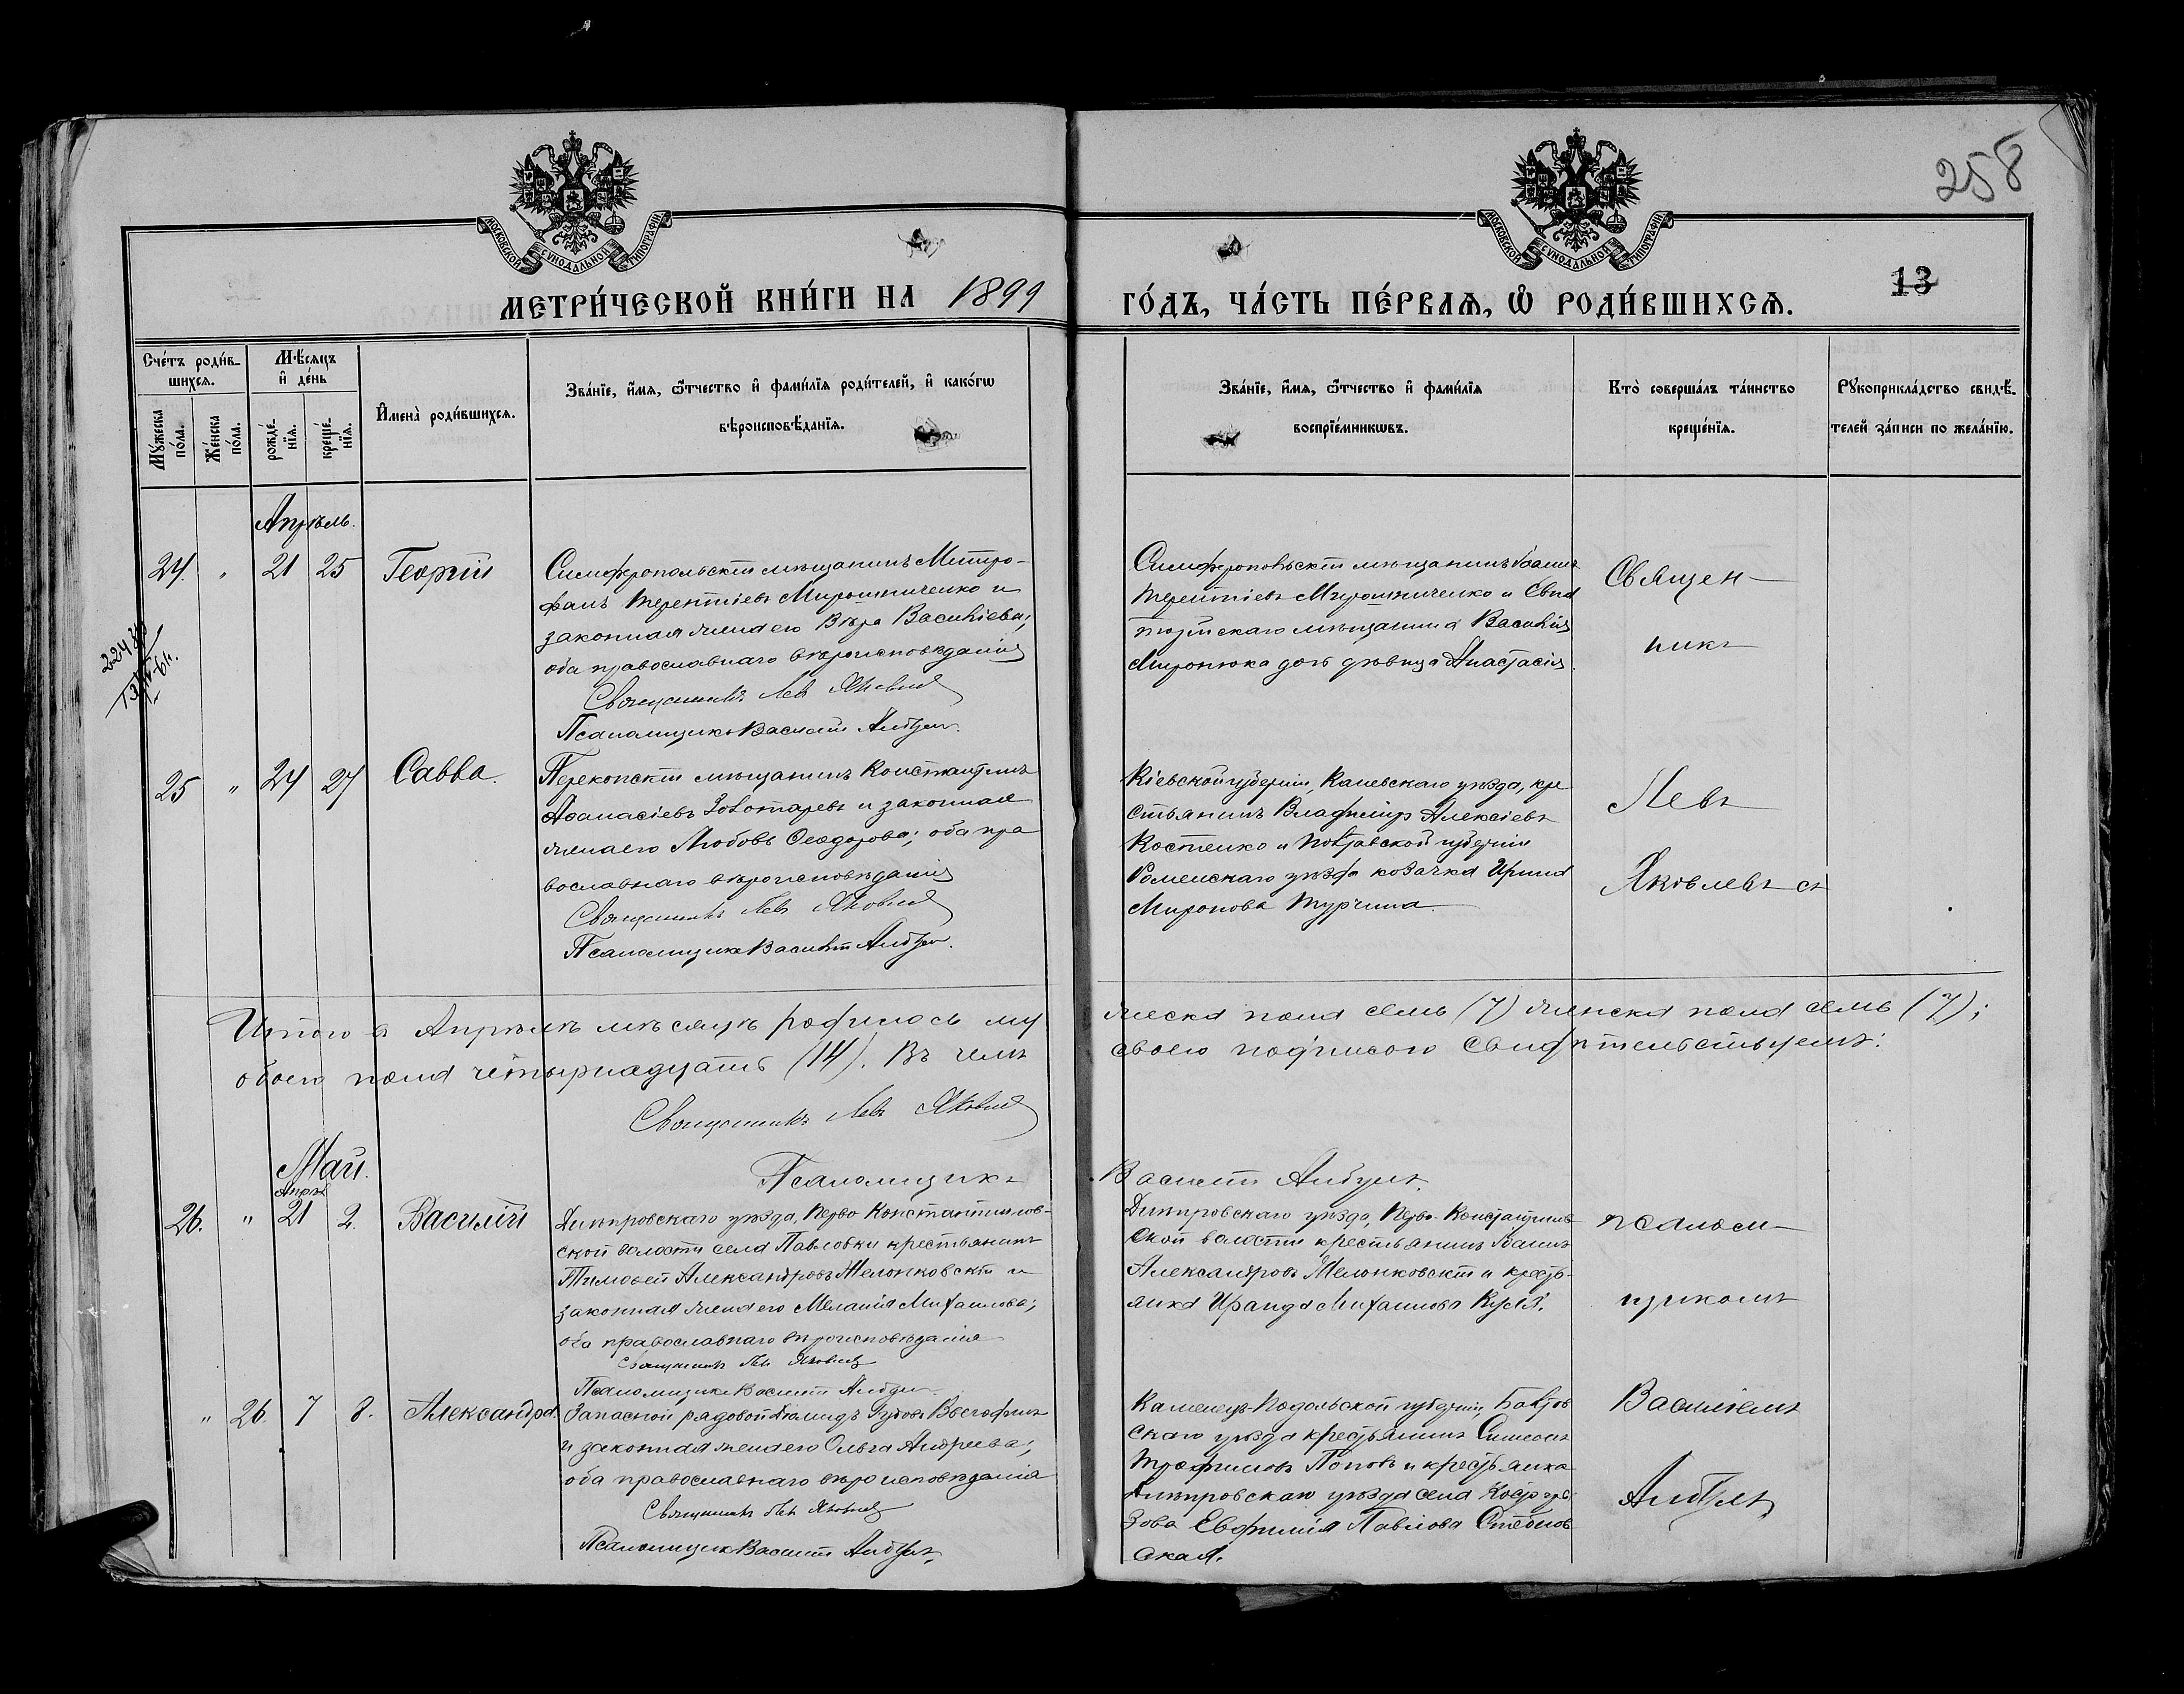 258
МОСКОВСКОЙ СѴНОДАЛЬНОЙ ТИПОГРАФІИ
МОСКОВСКОЙ СѴНОДАЛЬНОЙ ТИПОГРАФІИ
13
МЕТРИ́ЧЕСКОЙ КНИ́ГИ НА 1899 ГО́ДЪ, ЧА́СТЬ ПЕ́РВАѦ, Ѡ РОДИ́ВШИХСѦ.
Сче́тъ роди́в-
шихсѧ.
Мꙋ́жеска
по́ла.
Же́нска
по́ла.
Мѣ́сѧцъ
и҆ де́нь
рожде́-
нїѧ.
креще́-
нїѧ.
И҆мена̀ роди́вшихсѧ.
Зва́нїе, и҆́мѧ, ѻ҆́тчество и҆ фами́лїѧ роди́телей, и҆ како́гѡ
вѣроисповѣ́данїѧ.
Зва́нїе, и҆́мѧ, ѻ҆́тчество и҆ фами́лїѧ
воспрїе́мникѡвъ.
Кто̀ соверша́лъ та́инство
креще́нїѧ.
Рꙋкоприкла́дство свидѣ́-
телей за́писи по жела́нїю.
Апрѣль.
24. " 21 25 Георгій
Симферопольскій мѣщанинъ Митро-
фанъ Терентіевъ Мирошниченко и
законная жена его Вѣра Васильева;
оба православнаго вѣроисповѣданія
Священникъ Левъ Яковлев
Псаломщикъ Василій
Симферопольскій мѣщанинъ Іоаннъ
Терентіевъ Мирошниченко и Евпа
торійскаго мѣщанина Василія
Миронюка дочь дѣвица Анастасія.
Священ-
никъ
25 " 24 27 Савва.
Перекопскій мѣщанинъ Константинъ
Аѳанасіевъ Золотаревъ и законная
жена его Любовь Ѳеодорова; оба пра
вославнаго вѣроисповѣданія
Священникъ Левъ Яковлев
Псаломщикъ Василій
Кіевской губерніи, Каневскаго уѣзда, кре
стьянинъ Владиміръ Алексіевъ
Костенко и Полтавской губерніи
Роменскаго уѣзда козачка Ирина
Миронова Турчина.
Левъ
Яковлевъ съ
Итого въ Апрѣлѣ мѣсяцѣ родилось му
жеска пола семь (7) женска пола семь (7);
обоего пола четырнадцать (14). Въ чемъ
своею подписью свидѣтельствуемъ:
Священникъ Левъ Яковлев
Псаломщикъ Василій
Май.
Апрѣ
26. " 21 2. Василій
Днѣпровскаго уѣзда, Перво Константинов-
ской волости села Павловки крестьянинъ
Тимоѳей Александровъ Желонковскій и
законная жена его Меланія Михаилова;
оба православнаго вѣроисповѣданія
Священникъ Левъ Яковлев
Псаломщикъ Василій
Днѣпровскаго уѣзда, Перво-Константинов
ской волости крестьянинъ Іоаннъ
Александровъ Желонковскій и кресть-
янка Ираида Михаилова
псалом-
щикомъ
" 26. 7 8. Александра.
Запасной рядовой Діомидъ
и законная жена его Ольга Андреева;
оба православнаго вѣроисповѣданія
Священникъ Левъ Яковлев
Псаломщикъ Василій
Каменецъ-Подольской губерніи, Балтов
скаго уѣзда крестьянинъ Симеонъ
Трофимовъ Поповъ и крестьянка
Днѣпровскаго уѣзда села
Евфимія Павлова
ская.
Василіемъ